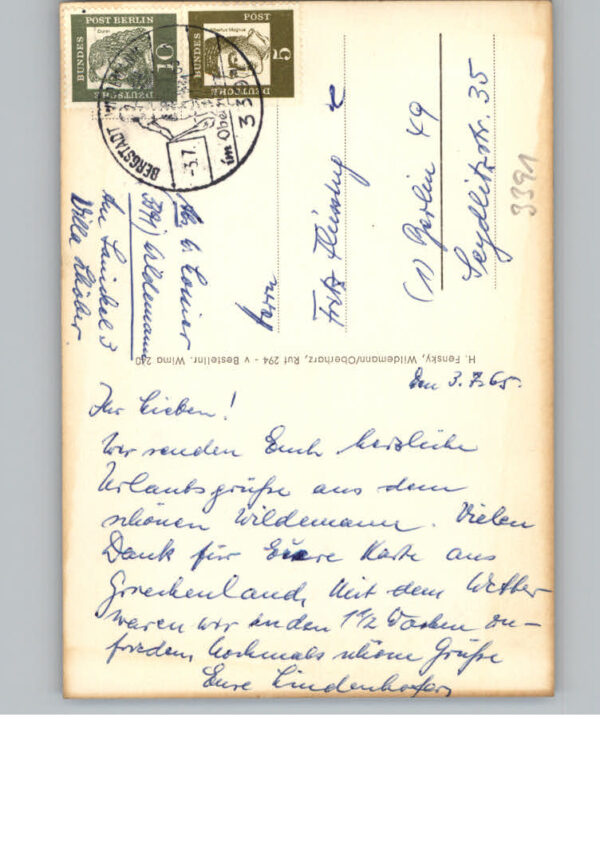 DEUTSCHE
BUNDES
POST BERLIN
Dürer
10
DEUTSCHE
BUNDES
POST
Albertus Magnus
5
BERGSTADT
-3.7.
im Oberharz
3391
Abs.
3391) Wildemann
Villa
Herrn
Fritz
(1) Berlin 49
Seydlitzstr. 35
3391
H. Fensky, Wildemann/Oberharz, Ruf 294 - v Bestellnr. Wima 240
Den 3.7.65.
Ihr Lieben!
Wir senden Euch herzliche
Urlaubsgrüße aus dem
schönen Wildemann. Vielen
Dank für Euere Karte aus
Griechenland, Mit dem Wetter
waren wir in den 1 1/2 Wochen zu-
frieden, Nochmals schöne Grüße
Eure Lindenhofers